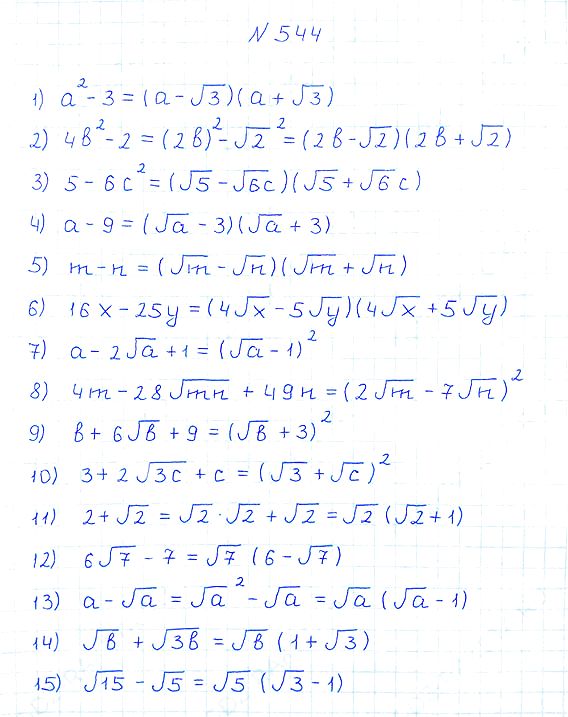 N 544
1) a² - 3 = (a - √3)(a + √3)
2) 4в² - 2 = (2в)² - √2² = (2в - √2)(2в + √2)
3) 5 - 6c² = (√5 - √6c)(√5 + √6 c)
4) a - 9 = (√a - 3)(√a + 3)
5) m - n = (√m - √n)(√m + √n)
6) 16x - 25y = (4√x - 5√y)(4√x + 5√y)
7) a - 2√a + 1 = (√a - 1)²
8) 4m - 28√mn + 49n = (2√m - 7√n)²
9) в + 6√в + 9 = (√в + 3)²
10) 3 + 2√3c + c = (√3 + √c)²
11) 2 + √2 = √2 · √2 + √2 = √2 (√2 + 1)
12) 6√7 - 7 = √7 (6 - √7)
13) a - √a = √a² - √a = √a (√a - 1)
14) √в + √3в = √в (1 + √3)
15) √15 - √5 = √5 (√3 - 1)